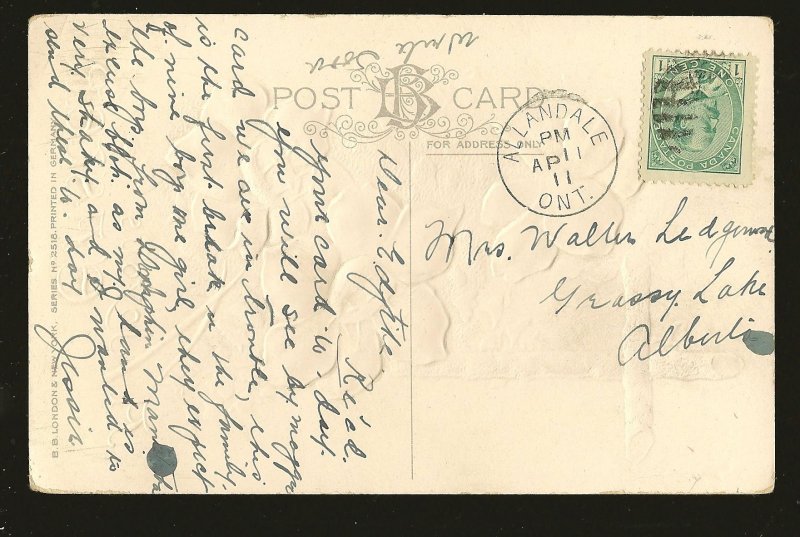 POST CARD
FOR ADDRESS ONLY
B
ALLANDALE
PM
AP 11
11
ONT.
CANADA POSTAGE
ONE CENT
1 1
Mrs. Walter
Grassy Lake
Alberta
Write soon
Dear Edythe
Rec'd.
your card to-day.
you will see by
card we are in trouble, this
is the first break in the family
of nine boy one girl, they expect
the boys from Dauphin
excuse as my hand is
very shaky and I wanted to
send this to day
Jessie
B.B. LONDON & NEW YORK. SERIES Nº 2518. PRINTED IN GERMANY